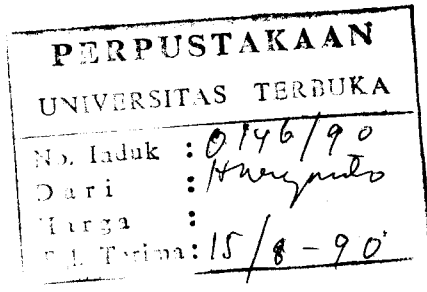 PERPUSTAKAAN
UNIVERSITAS TERBUKA
No. Induk : 0146/90
Dari :
Harga :
Tgl. Terima: 15/8-90